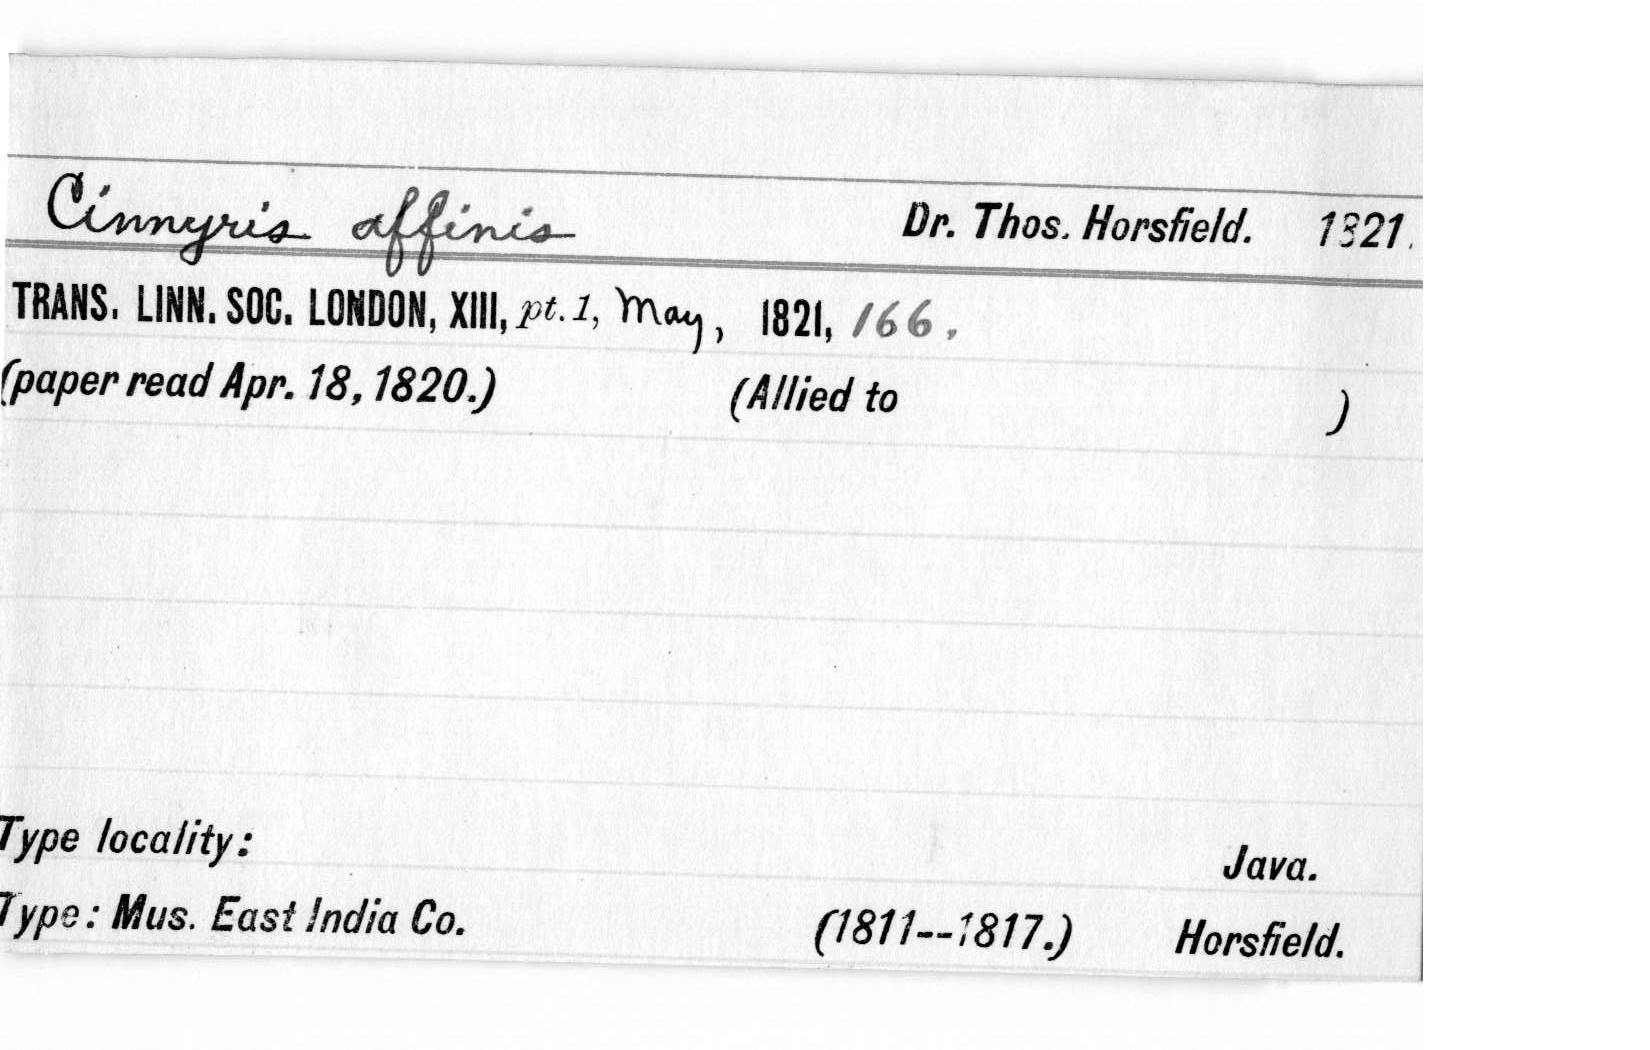 Cinnyris affinis Dr. Thos. Horsfield. 1821.
TRANS. LINN. SOC. LONDON, XIII, pt. 1, May, 1821, 166.
(paper read Apr. 18, 1820.) (Allied to )
Type locality: Java.
Type: Mus. East India Co. (1811--1817.) Horsfield.